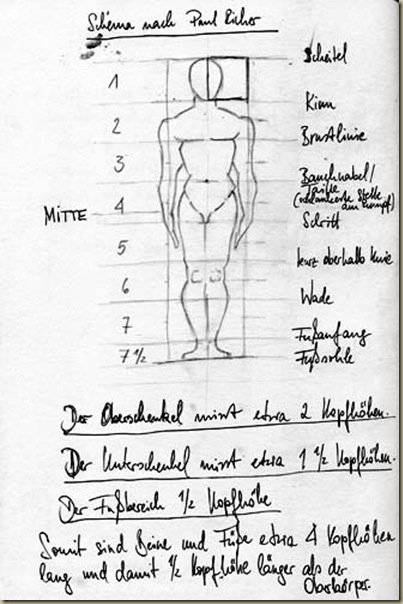 Schema nach Paul Richer
Scheitel
1
Kinn
2
Brustlinie
3
Bauchnabel/
Taille
(schlankeste Stelle
am Rumpf)
MITTE
4
Schritt
5
kurz oberhalb Knie
6
Wade
7
Fußanfang
7 1/2
Fußsohle
Der Oberschenkel misst etwa 2 Kopfhöhen.
Der Unterschenkel misst etwa 1 1/2 Kopfhöhen.
Der Fußbereich 1/2 Kopfhöhe
Somit sind Beine und Füße etwa 4 Kopfhöhen
lang und damit 1/2 Kopfhöhe länger als der
Oberkörper.